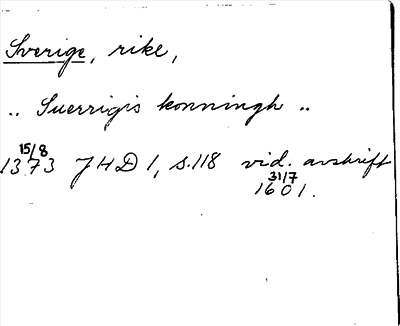 Sverige, rike,
.. Suerrigis konningh ..
15/8
1373 JHD 1, s.118 vid. avskrift
31/7
1601.